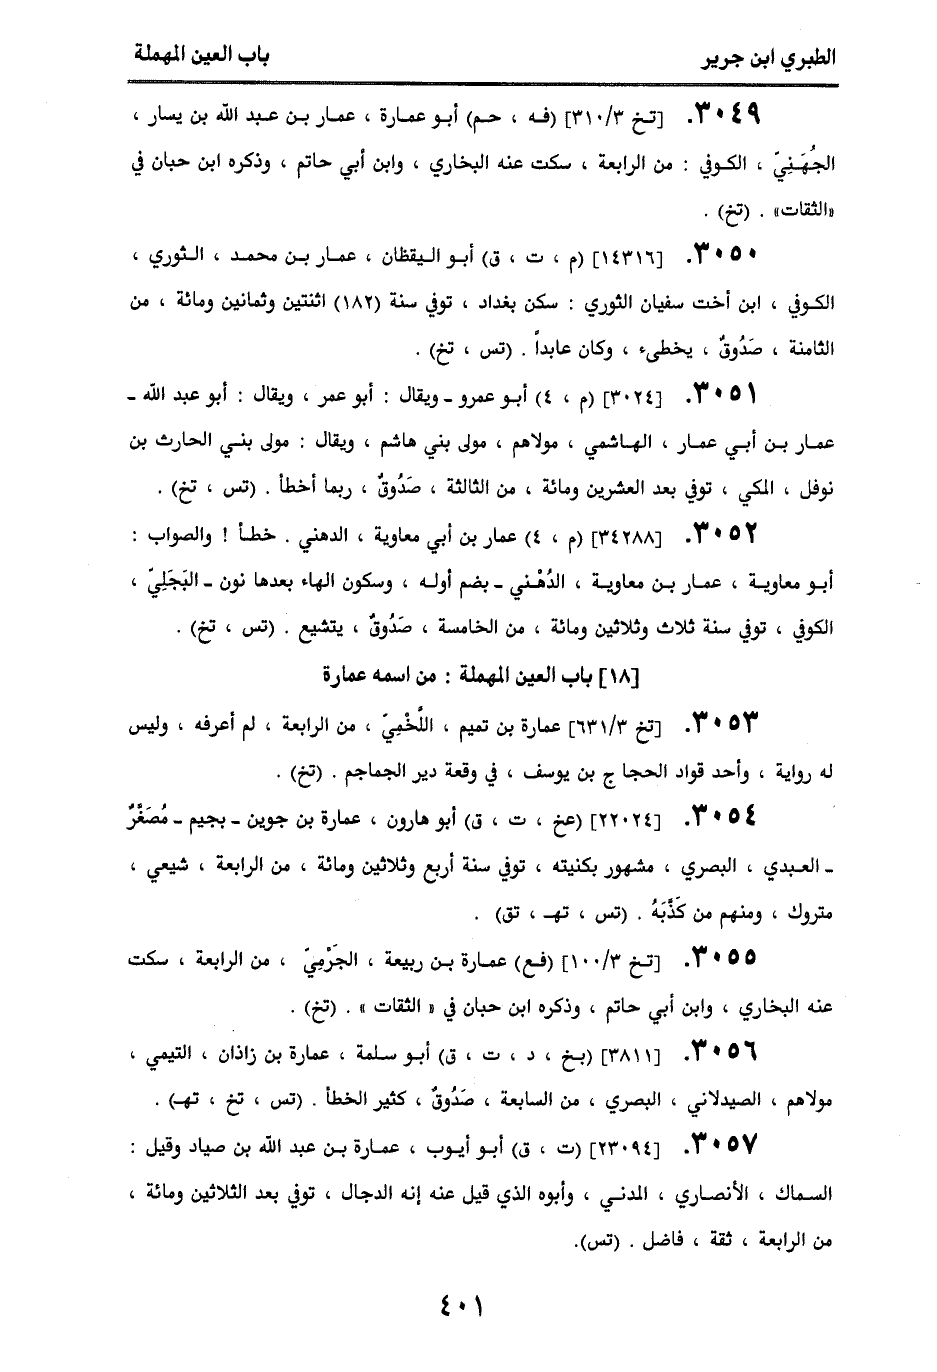 الطبري ابن جرير
باب العين المهملة
٣٠٤٩. [تخ ٣/ ٣١٠] (فه ، حم) أبو عمارة ، عمار بن عبد الله بن يسار ،
الجُهَنِيّ ، الكوفي : من الرابعة ، سكت عنه البخاري ، وابن أبي حاتم ، وذكره ابن حبان في
«الثقات» . (تخ) .
٣٠٥٠. [١٤٣١٦] (م ، ت ، ق) أبو اليقظان ، عمار بن محمد ، الثوري ،
الكوفي ، ابن أخت سفيان الثوري : سكن بغداد ، توفي سنة (١٨٢) اثنتين وثمانين ومائة ، من
الثامنة ، صَدُوقٌ ، يخطىء ، وكان عابداً . (تس ، تخ) .
٣٠٥١. [٣٠٢٤] (م ، ٤) أبو عمرو ـ ويقال : أبو عمر ، ويقال : أبو عبد الله ـ
عمار بن أبي عمار ، الهاشمي ، مولاهم ، مولى بني هاشم ، ويقال : مولى بني الحارث بن
نوفل ، المكي ، توفي بعد العشرين ومائة ، من الثالثة ، صَدُوقٌ ، ربما أخطأ . (تس ، تخ) .
٣٠٥٢. [٣٤٢٨٨] (م ، ٤) عمار بن أبي معاوية ، الدهني . خطأ ! والصواب :
أبو معاوية ، عمار بن معاوية ، الدُهْني ـ بضم أوله ، وسكون الهاء بعدها نون ـ البَجَلِيّ ،
الكوفي ، توفي سنة ثلاث وثلاثين ومائة ، من الخامسة ، صَدُوقٌ ، يتشيع . (تس ، تخ) .
[١٨] باب العين المهملة : من اسمه عمارة
٣٠٥٣. [تخ ٣/ ٦٣١] عمارة بن تميم ، اللَّخْمِيّ ، من الرابعة ، لم أعرفه ، وليس
له رواية ، وأحد قواد الحجا ج بن يوسف ، في وقعة دير الجماجم . (تخ) .
٣٠٥٤. [٢٢٠٢٤] (عخ ، ت ، ق) أبو هارون ، عمارة بن جوين ـ بجيم ـ مُصَغَّرٌ
ـ العبدي ، البصري ، مشهور بكنيته ، توفي سنة أربع وثلاثين ومائة ، من الرابعة ، شيعي ،
متروك ، ومنهم من كَذَّبَهُ . (تس ، تهـ ، تق) .
٣٠٥٥. [تخ ٣/ ١٠٠] (فع) عمارة بن ربيعة ، الجَرْمِيّ ، من الرابعة ، سكت
عنه البخاري ، وابن أبي حاتم ، وذكره ابن حبان في « الثقات » . (تخ) .
٣٠٥٦. [٣٨١١] (بخ ، د ، ت ، ق) أبو سلمة ، عمارة بن زاذان ، التيمي ،
مولاهم ، الصيدلاني ، البصري ، من السابعة ، صَدُوقٌ ، كثير الخطأ . (تس ، تخ ، تهـ) .
٣٠٥٧. [٢٣٠٩٤] (ت ، ق) أبو أيوب ، عمارة بن عبد الله بن صياد وقيل :
السماك ، الأنصاري ، المدني ، وأبوه الذي قيل عنه إنه الدجال ، توفي بعد الثلاثين ومائة ،
من الرابعة ، ثقة ، فاضل . (تس).
٤٠١